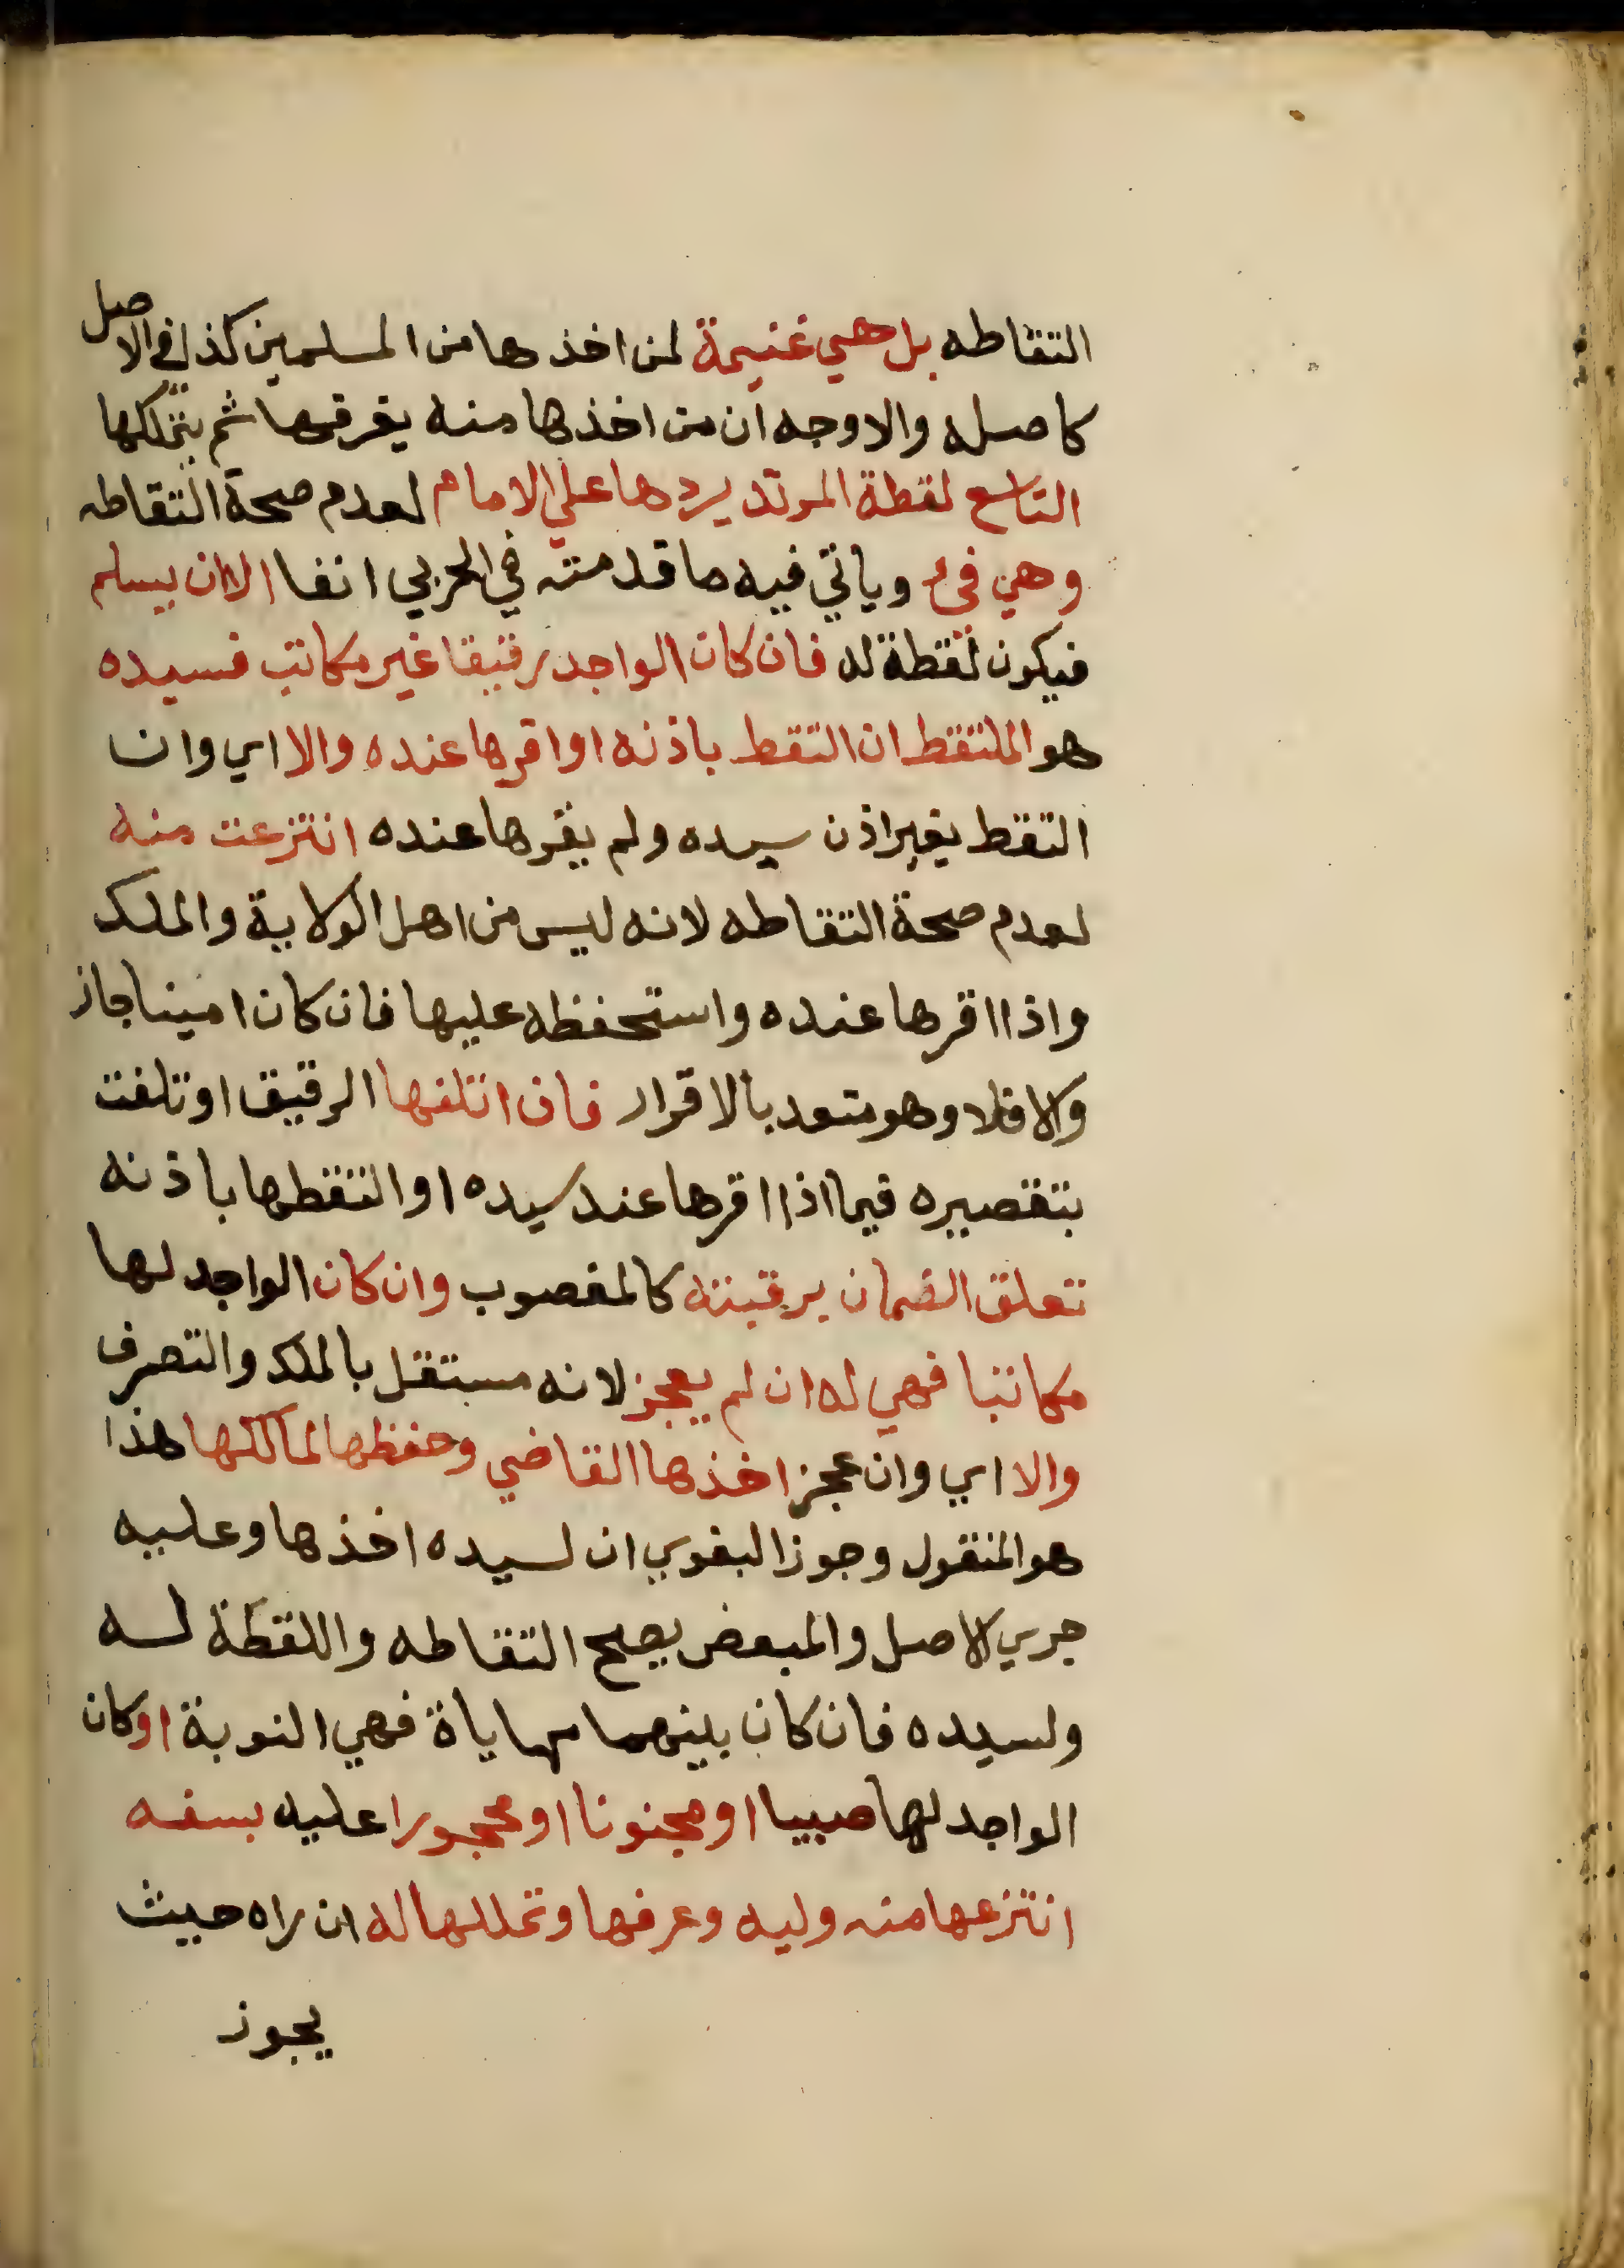 التقاطه بل هي غنيمة لمن اخذها من المسلمين كذا في الاصل
كاصله والاوجه ان من اخذها منه يعرفها ثم يتملكها
التاسع لقطة المرتد يردها علي الامام لعدم صحة التقاطه
وهي فئ وياتي فيه ما قدمته في الحربي انفا الا ان يسلم
فيكون لقطة له فان كان الواجد رقيقا غير مكاتب فسيده
هو الملتقط ان التقط باذنه او اقرها عنده والا اي وان
التقط بغير اذن سيده ولم يقرها عنده انتزعت منه
لعدم صحة التقاطه لانه ليس من اهل الولاية والملك
واذا اقرها عنده واستحفظه عليها فان كان امينا جاز
والا فلا وهو متعد بالاقرار فان اتلفها الرقيق او تلفت
بتقصيره فيما اذا اقرها عند سيده او التقطها باذنه
تعلق الضمان برقبته كالمغصوب وان كان الواجد لها
مكاتبا فهي له ان لم يعجز لانه مستقل بالملك والتصرف
والا اي وان عجز اخذها القاضي وحفظها لمالكها هذا
هو المنقول وجوز البغوي ان لسيده اخذها وعليه
جري الاصل والمبعض يصح التقاطه واللقطة له
ولسيده فان كان بينهما مهاياة فهي النوبة او كان
الواجد لها صبيا او مجنونا او محجورا عليه بسفه
انتزعها منه وليه وعرفها وتملكها له ان راه حيث
يجوز